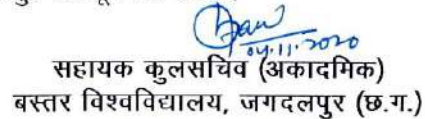 04.11.2020
सहायक कुलसचिव (अकादमिक)
बस्तर विश्वविद्यालय, जगदलपुर (छ.ग.)